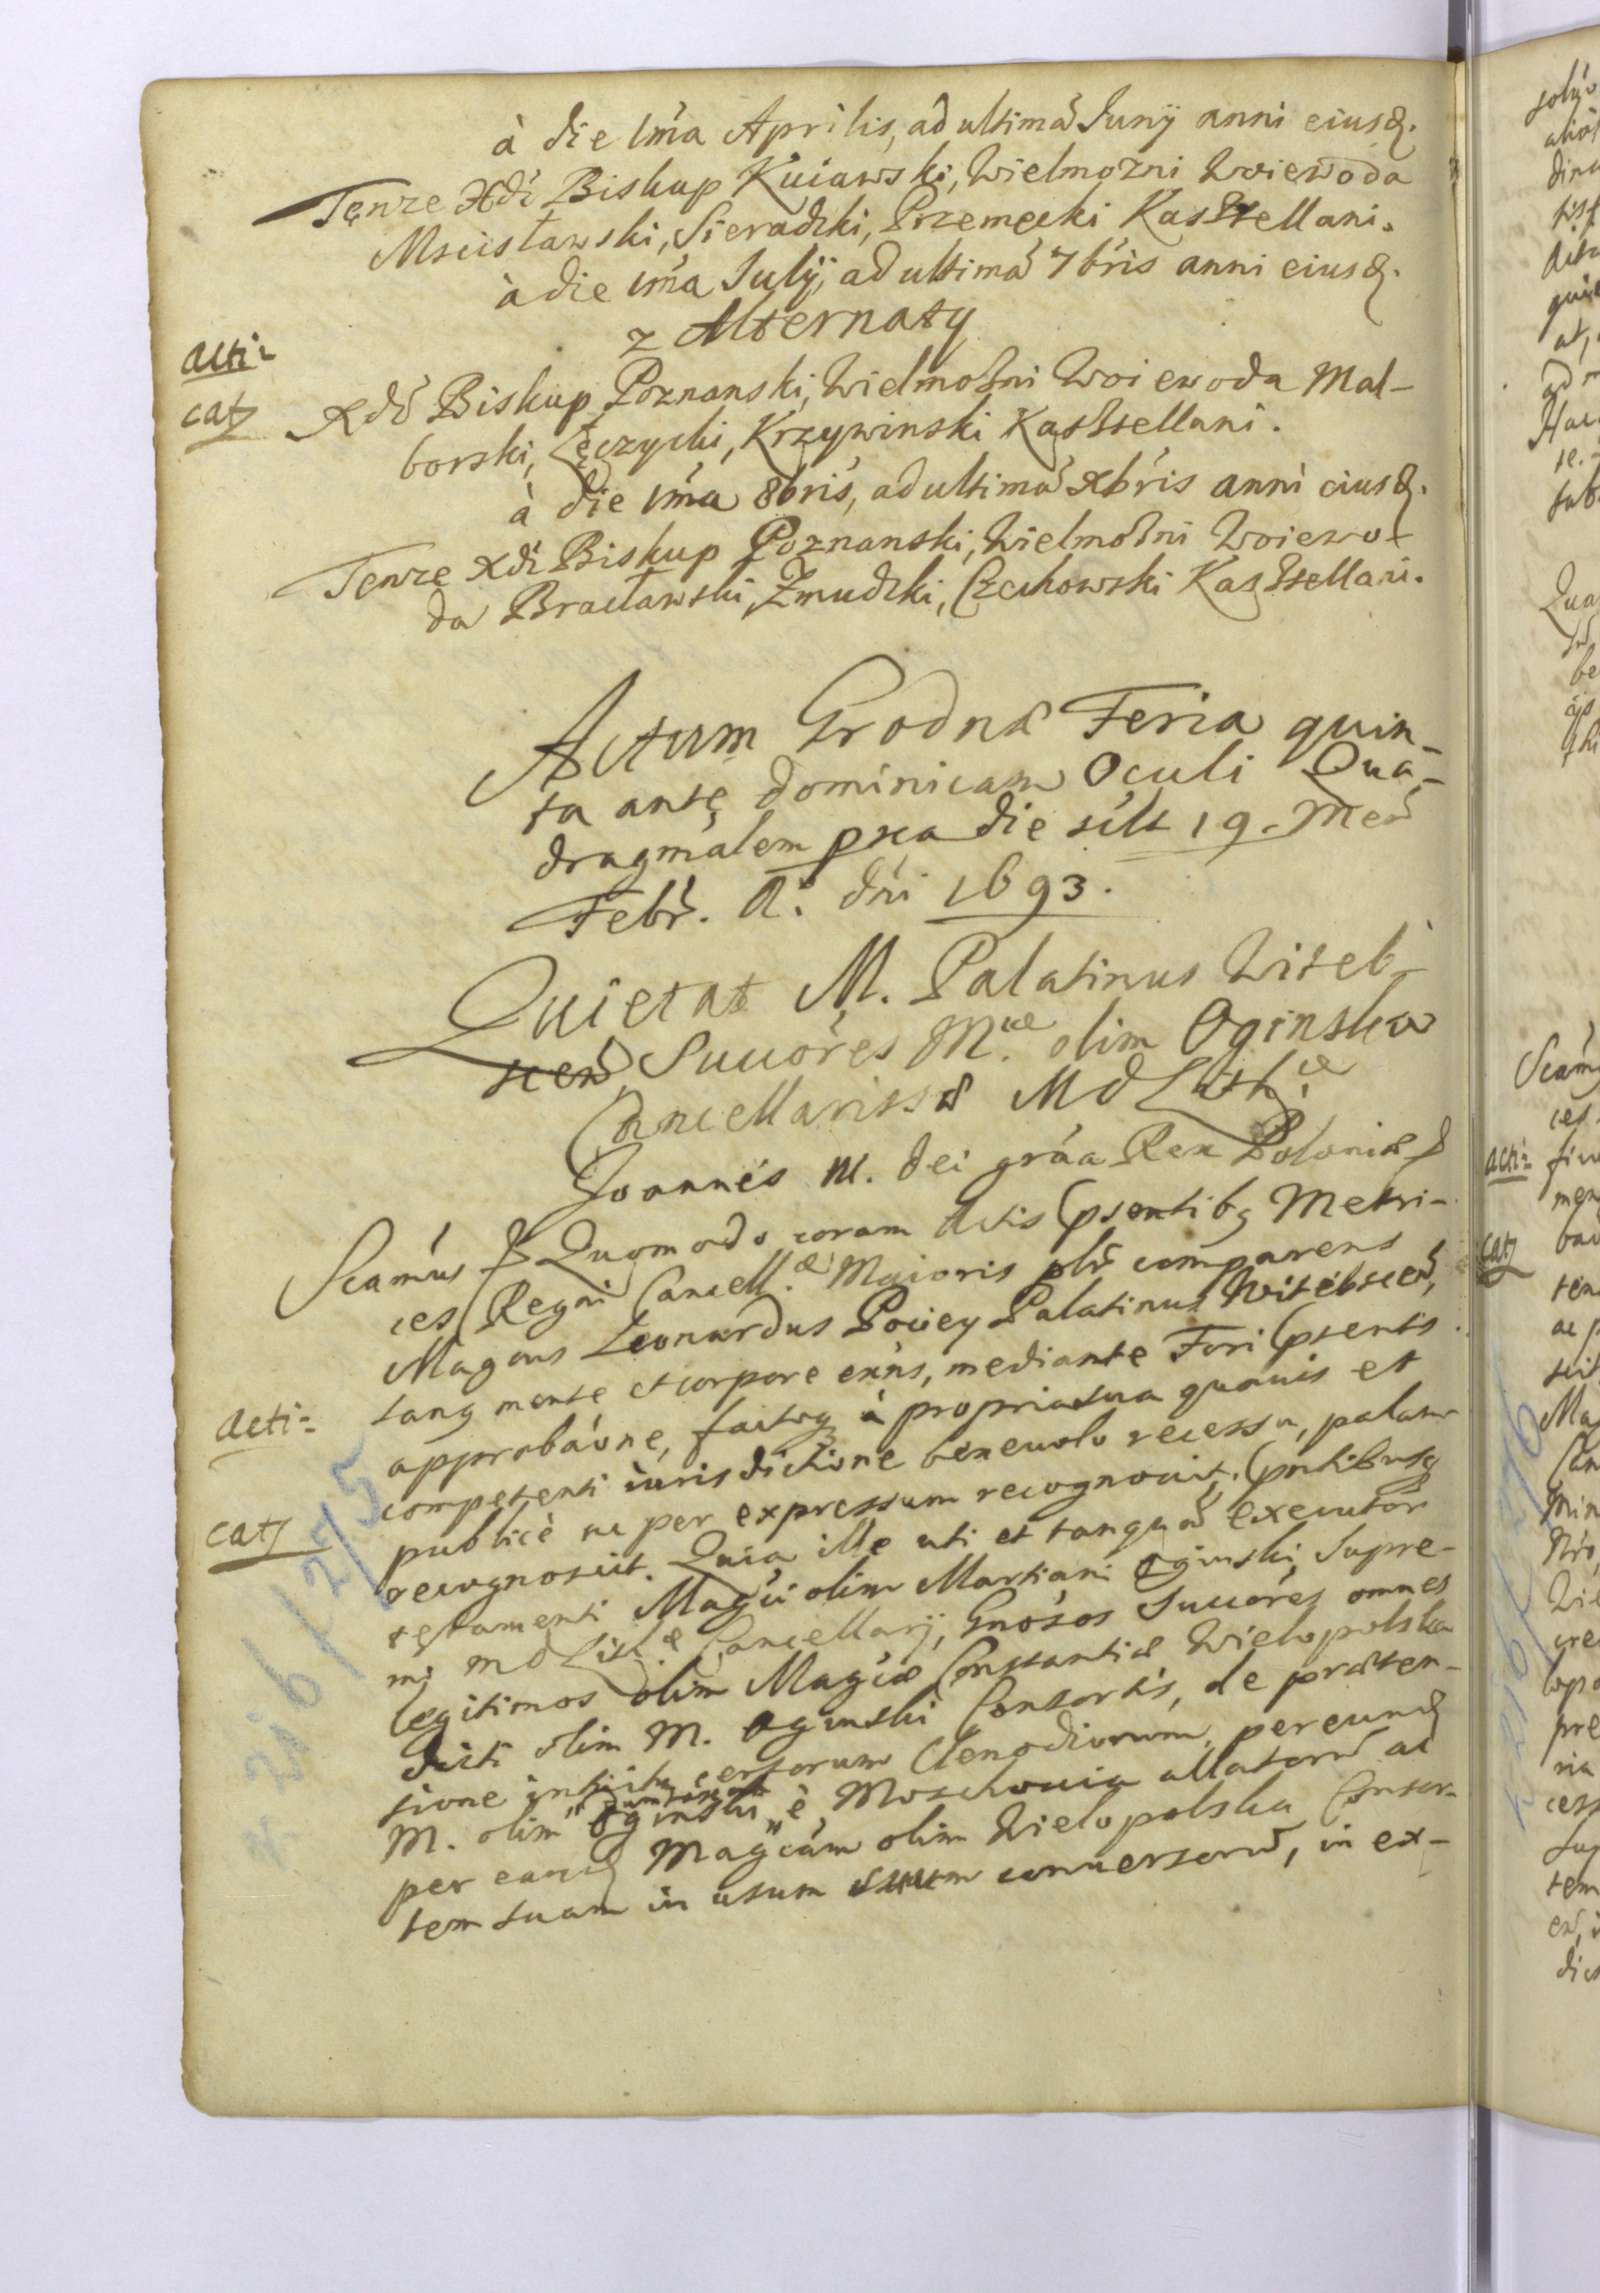 à die 1má Aprilis, ad ultimã Iunÿ anni eiusd.
Tenze Xdź Biskup Kuiawski, Wielmozni Woiewoda
Mscisławski, Sieradzki, Przemęcki Kasztellani.
à die 1má Julÿ, ad ultimã 7bris anni eiusd.
z Alternaty
Xdź Biskup Poznanski, Wielmożni Woiewoda Mal-
borski, Łęczycki, Krzywinski Kasztellani.
à die 1má 8bris, ad ultimã Xbris anni eiusd.
Tenze Xdź Biskup Poznanski, Wielmożni Woiewo-
da Bracławski, Zmudzki, Czechowski Kasztellani.
Acti-
cat
Actum Grodnæ Feria quin-
ta ante Dominicam Oculi Qua-
dragmalem pxa die scilt 19. Men
Febr. A. dni 1693.
Quietat M. Palatinus Witeb-
scen Succóres M.cæ olim Oginska
Cancellarissæ M D Lith.æ
Joannes III. Dei grãa Rex Poloniæ &
Scamús & Quomodo coram Actis psentibg Metri-
ces Regni Cancell.æ Maioris plr comparens
Magcus Leonardus Pociey Palatinus Witebscen,
sang mente et corpore exńs, mediante Fori psentis
approbaóne, factoq à propria sua quavis et
competenti iurisdictione benevolo recessu, palam
publicè ac per expressum recognovit, pntibusq
recognoscit. Quia ille uti et tanquã executor
testamenti Magci olim Martiani Oginski, Supre-
mi M D Lith.æ Cancellarÿ, Gnósos Succóres omnes
legitimos olim Magcæ Constantiæ Wielopolska
dicti olim M. Oginski Consortis, de præten-
sione intuitu certorum Clenodiorum, per eund
M. olim Oginski è Moschovia allatorũ ac
per eand Magcam olim Wielopolska Consor-
tem suam in usum suum conversorũ, in ex-
Acti-
cat
275